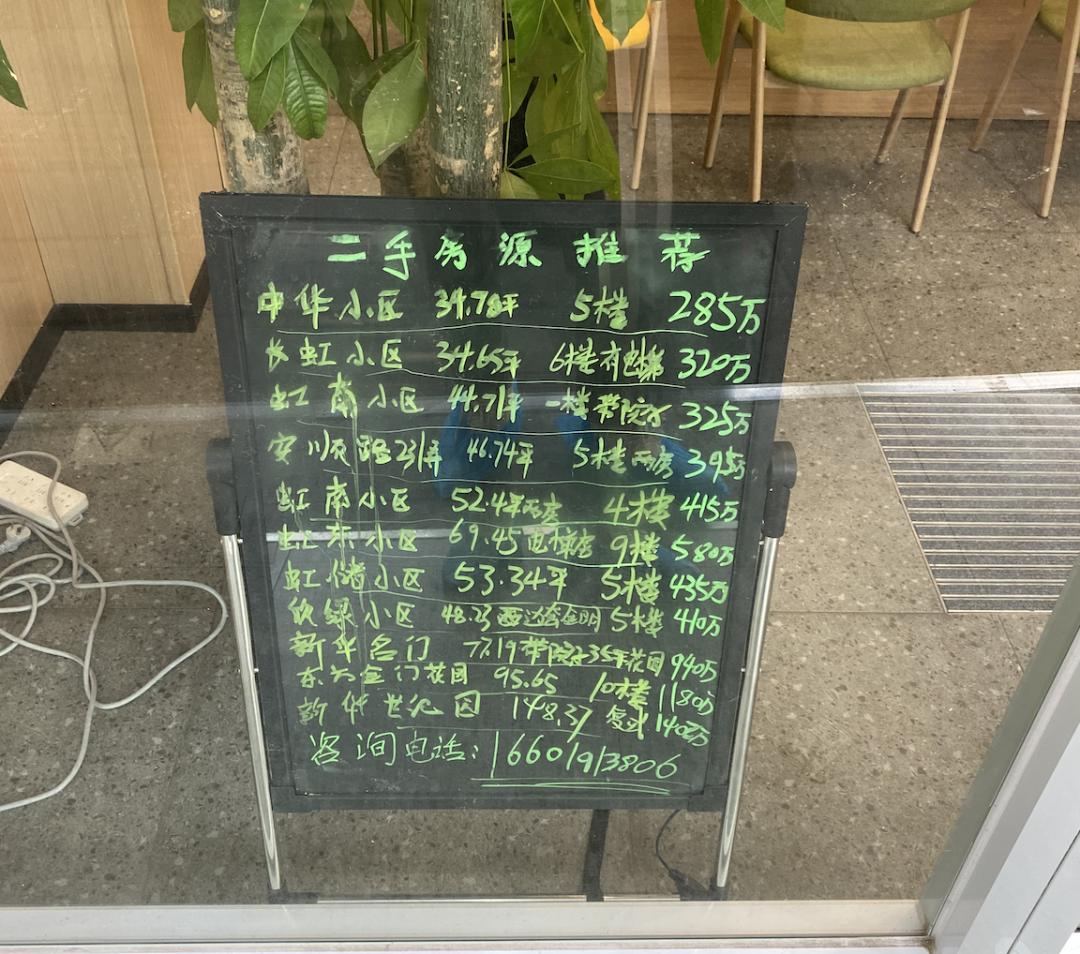 二手房源推荐
中华小区 39.78坪 5楼 285万
长虹小区 34.65坪 6楼有电梯 320万
虹南小区 44.71坪 一楼带院子 325万
安顺路231弄 46.74坪 5楼两房 395万
虹南小区 52.4坪两房 4楼 415万
虹东小区 69.45 电梯房 9楼 580万
虹储小区 53.34坪 5楼 435万
欣绿小区 48.23 西边套全明 5楼 410万
新华名门 77.19 带院子35坪花园 940万
东方金门花园 95.65 10楼 1180万
新华世纪园 148.37 复式 1400万
咨询电话:16601913806